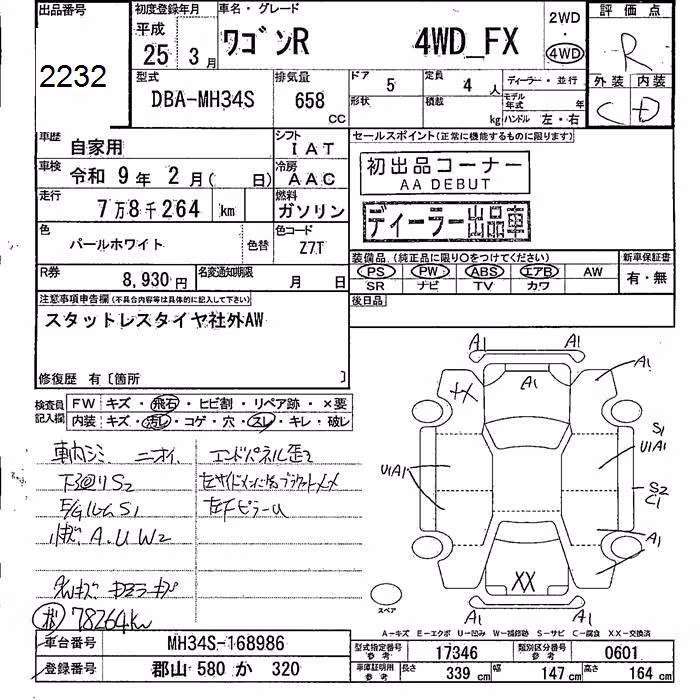 出品番号
2232
初度登録年月
平成
25 3月
車名・グレード
ワゴンR 4WD_FX
2WD
・
4WD
評価点
R
外装 内装
C D
型式
DBA-MH34S
排気量
658 CC
ドア 5
定員 4 人
形状
積載 kg
ディーラー・並行
モデル年式 年
ハンドル 左・右
車歴
自家用
シフト
IAT
車検
令和 9年 2月( 日)
冷房
AAC
走行
7万8千264 km
燃料
ガソリン
色
パールホワイト
色替
色コード
Z7T
R券
8,930円
名変通知期限
月 日
セールスポイント(正常に機能するものに限ります)
初出品コーナー
AA DEBUT
ディーラー出品車
装備品、(純正品に限り○をつけてください)
PS PW ABS エアB AW
SR ナビ TV カワ
新車保証書
有・無
後日品
注意事項申告欄(不具合内容等は具体的に記入して下さい)
スタットレスタイヤ社外AW
修復歴 有〔箇所 〕
検査員記入欄
FW キズ・飛石・ヒビ割・リペア跡・×要
内装 キズ・汚レ・コゲ・穴・スレ・キレ・破レ
車内シミ ニオイ
下廻りS2
E/GルームS1
小キズ A.U W2
エンドパネル歪2
78264km
A1 A1
A1
A1
XX
S1
U1A1
U1A1
S2
C1
A1
XX
A1 A1
スペア
A-キズ E-エクボ U-凹み W-補修跡 S-サビ C-腐食 XX-交換済
車台番号
MH34S-168986
登録番号
郡山 580 か 320
型式指定番号 参考
17346
類別区分番号 参考
0601
車庫証明用 参考
長さ 339 cm
幅 147 cm
高さ 164 cm